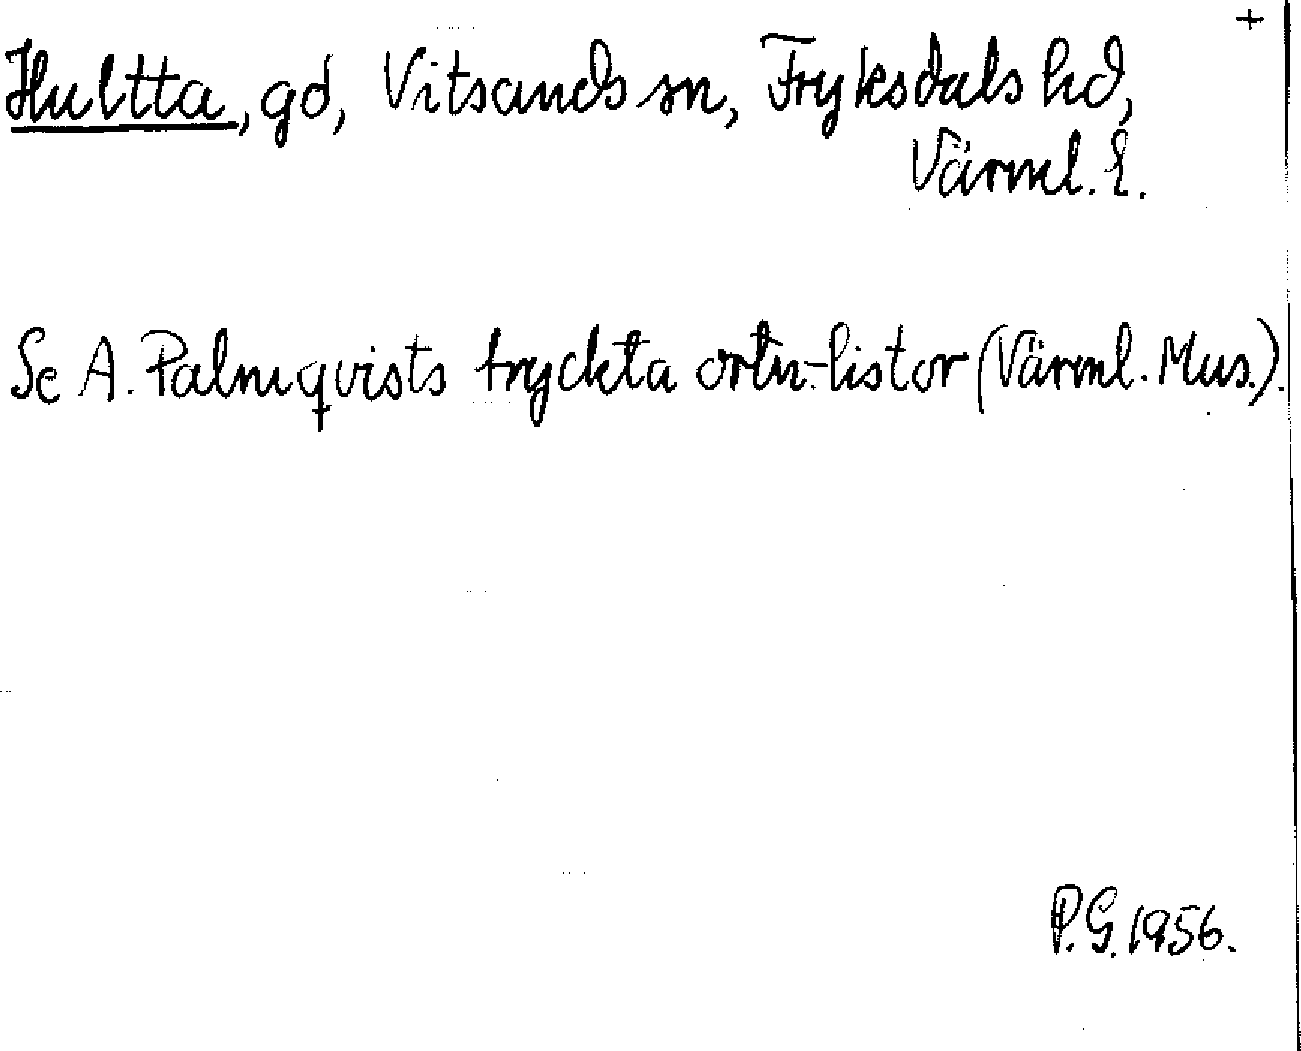 +
Hultta, gd, Vitsands sn, Fryksdals hd,
Värml. l.
Se A. Palmqvists tryckta ortn-listor (Värml. Mus.).
P.G. 1956.